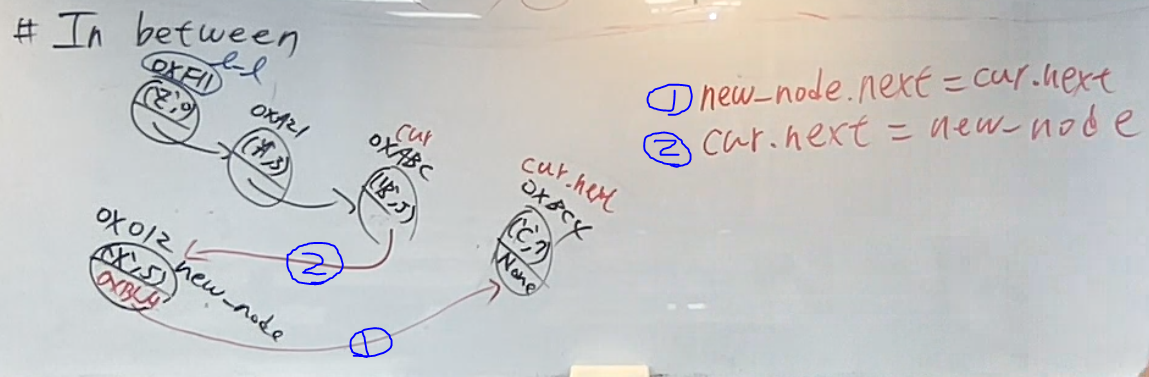 # In between
l-l
0XF11
('Z',9)
0XA21
('A',3)
cur
0XABC
('B',5)
cur.next
('C',7)
None
0X012
('X',5)
new_node
① new_node.next = cur.next
② cur.next = new_node
②
①